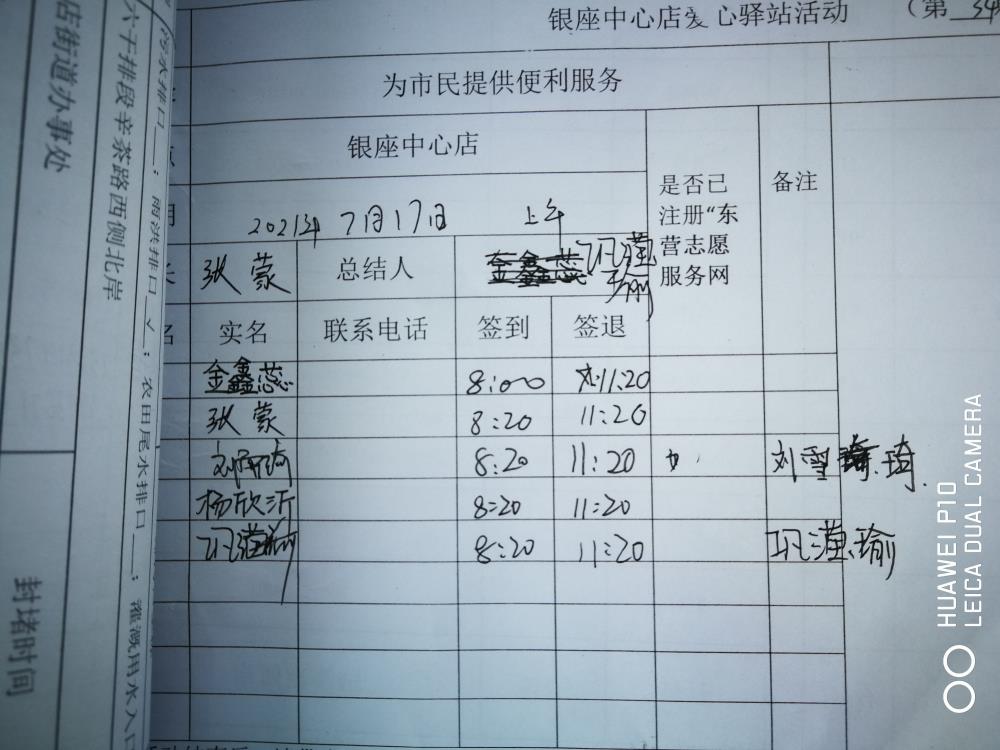 银座中心店爱心驿站活动 (第 34
为市民提供便利服务
银座中心店
是否已注册“东营志愿服务网
备注
2021年 7月17日 上午
张蒙 总结人 金鑫蕊 巩滢瑜
实名 联系电话 签到 签退
金鑫蕊 8:00 11:20
张蒙 8:20 11:20
8:20 11:20 刘雪琦
杨欣沂 8:20 11:20
巩滢瑜 8:20 11:20 巩滢瑜
店街道办事处
六干排段辛茶路西侧北岸
污水排口__; 雨洪排口 ✓; 农田尾水排口__; 灌溉用水入口
封堵时间
HUAWEI P10
LEICA DUAL CAMERA